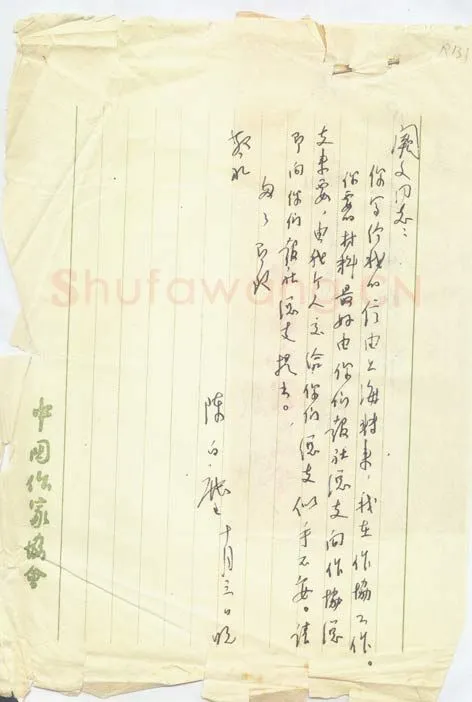 阙文同志：
你写给我的信由上海转来，我在作协工作。
你需材料最好由你们报社总支向作协总
支来要，由我个人交给你们总支似乎不妥。请
即向你们报社总支提出。
匆匆 即致
敬礼
陈白尘 十月三日晚
中国作家協會
Shufawang.CN